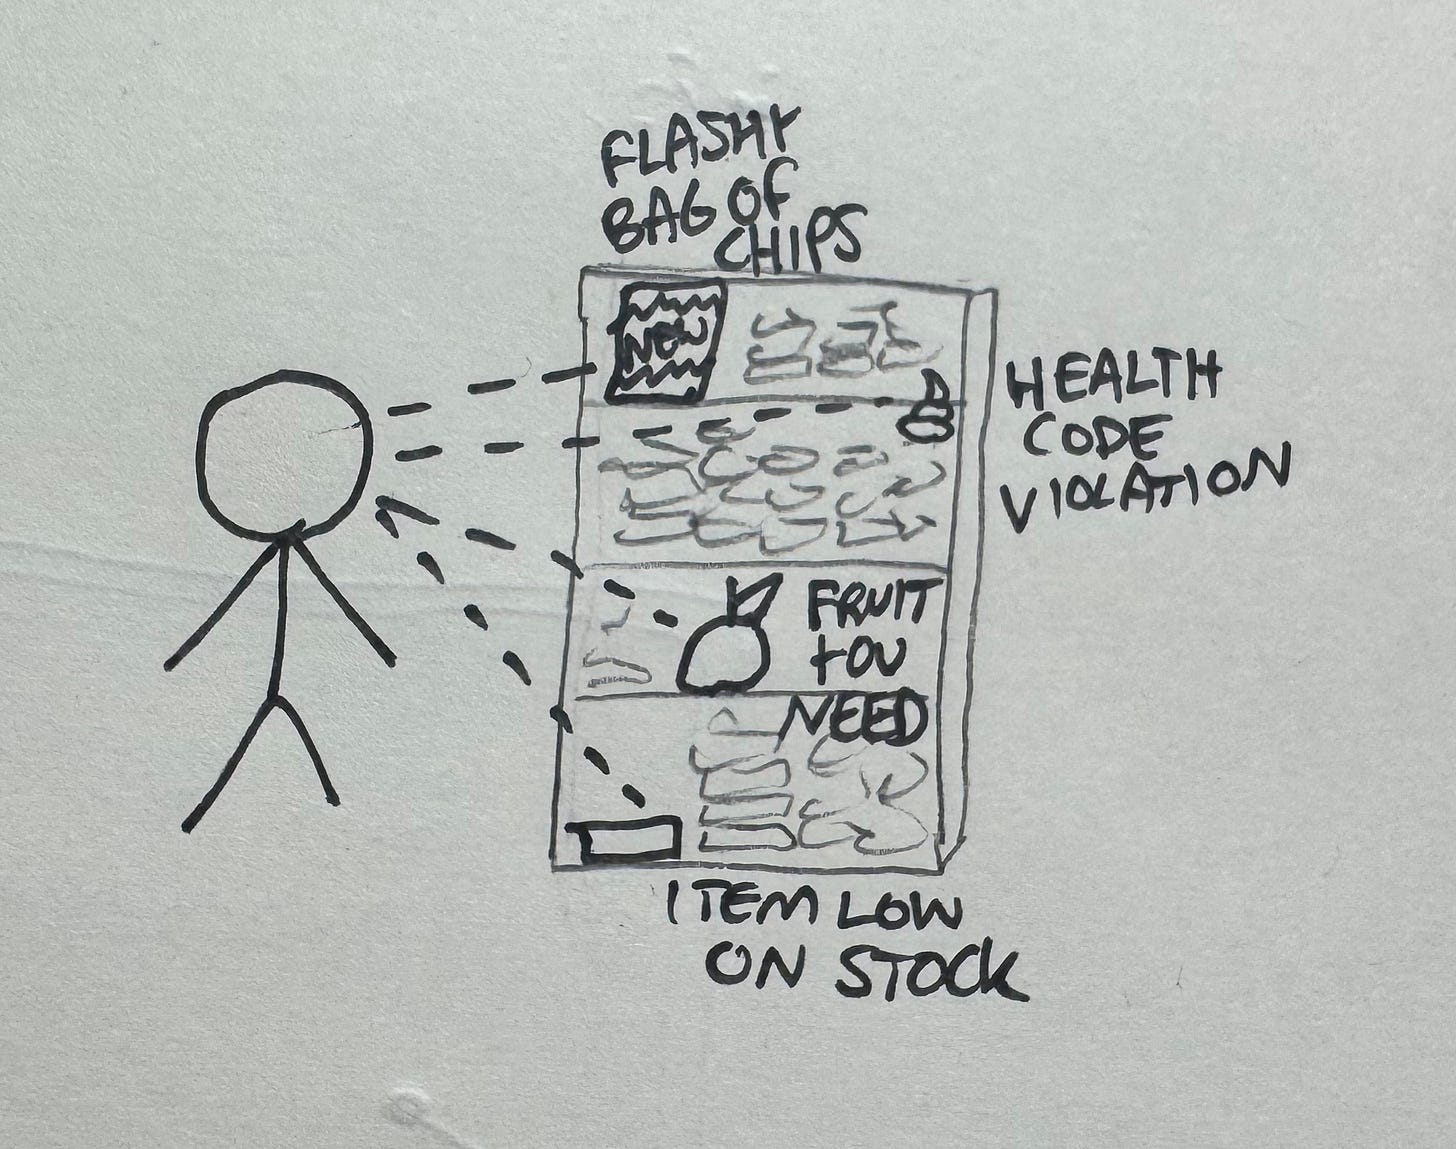 FLASHY
BAG OF
CHIPS
NEW
HEALTH
CODE
VIOLATION
FRUIT
YOU
NEED
ITEM LOW
ON STOCK